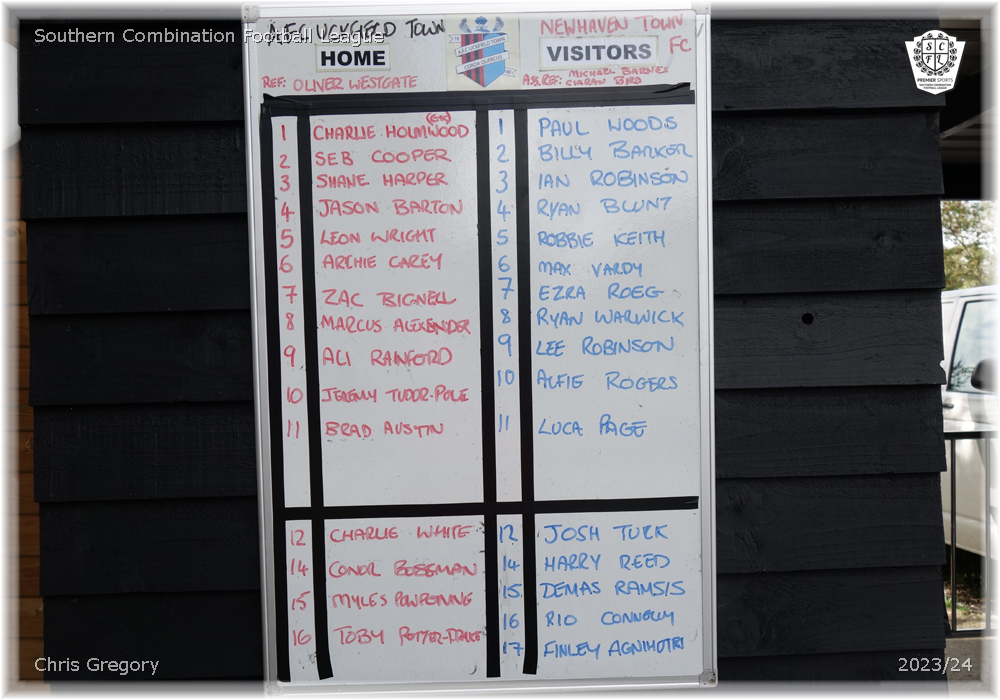 Southern Combination Football League
A.F.C. UCKFIELD TOWN
HOME
REF: OLIVER WESTGATE
NEWHAVEN TOWN FC
VISITORS
ASS.REF: MICHAEL BARNES
CIARAN BIRD
S C
F L
PREMIER SPORTS
SOUTHERN COMBINATION
FOOTBALL LEAGUE
A.F.C. UCKFIELD TOWN
1 CHARLIE HOLMWOOD (GK)
2 SEB COOPER
3 SHANE HARPER
4 JASON BARTON
5 LEON WRIGHT
6 ARCHIE CAREY
7 ZAC BIGNELL
8 MARCUS ALEXENDER
9 ALI RANFORD
10 JEREMY TUDOR-POLE
11 BRAD AUSTIN
12 CHARLIE WHITE
14 CONOR
15 MYLES
16 TOBY POTTER-DRAKE
1 PAUL WOODS
2 BILLY BARKER
3 IAN ROBINSON
4 RYAN BLUNT
5 ROBBIE KEITH
6 MAX VARDY
7 EZRA ROEG
8 RYAN WARWICK
9 LEE ROBINSON
10 ALFIE ROGERS
11 LUCA PAGE
12 JOSH TUCK
14 HARRY REED
15 DEMAS RAMSIS
16 RIO CONNOLLY
17 FINLEY AGNIHOTRI
Chris Gregory
2023/24